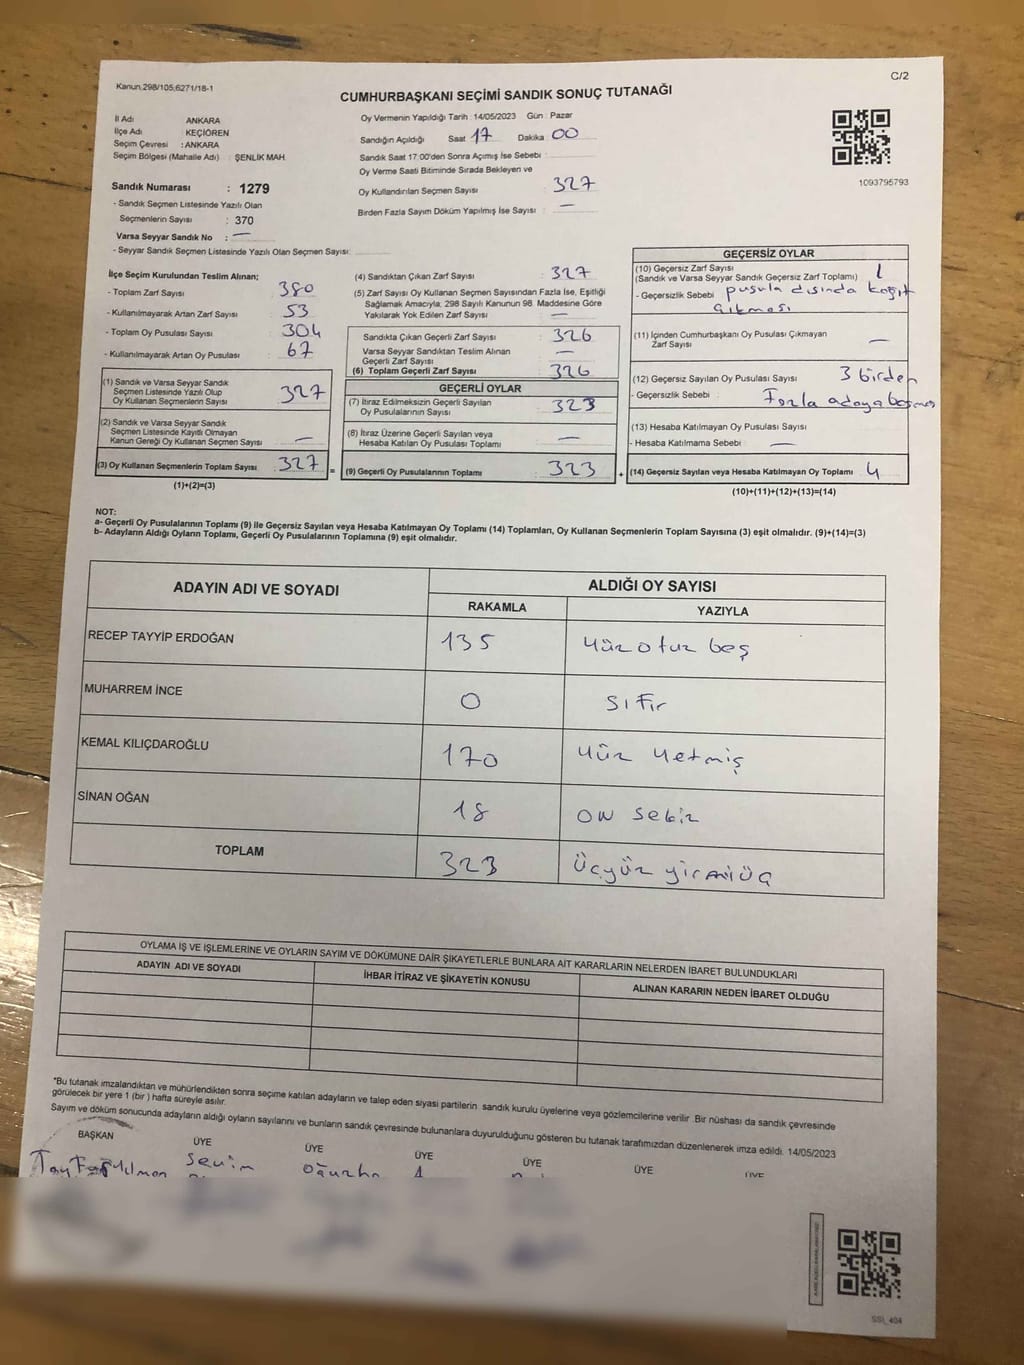 Kanun,298/105,6271/18-1
C/2
CUMHURBAŞKANI SEÇİMİ SANDIK SONUÇ TUTANAĞI
İl Adı ANKARA
İlçe Adı KEÇİÖREN
Seçim Çevresi : ANKARA
Seçim Bölgesi (Mahalle Adı) : ŞENLİK MAH.
Sandık Numarası : 1279
- Sandık Seçmen Listesinde Yazılı Olan
Seçmenlerin Sayısı : 370
Varsa Seyyar Sandık No : —
- Seyyar Sandık Seçmen Listesinde Yazılı Olan Seçmen Sayısı:
Oy Vermenin Yapıldığı Tarih : 14/05/2023 Gün : Pazar
Sandığın Açıldığı Saat 17 Dakika 00
Sandık Saat 17:00'den Sonra Açımış İse Sebebi :
Oy Verme Saati Bitiminde Sırada Bekleyen ve
Oy Kullandırılan Seçmen Sayısı 327
Birden Fazla Sayım Döküm Yapılmış İse Sayısı : —
1093795793
İlçe Seçim Kurulundan Teslim Alınan;
- Toplam Zarf Sayısı 380
- Kullanılmayarak Artan Zarf Sayısı : 53
- Toplam Oy Pusulası Sayısı : 304
- Kullanılmayarak Artan Oy Pusulası : 67
(1) Sandık ve Varsa Seyyar Sandık
Seçmen Listesinde Yazılı Olup
Oy Kullanan Seçmenlerin Sayısı : 327
(2) Sandık ve Varsa Seyyar Sandık
Seçmen Listesinde Kayıtlı Olmayan
Kanun Gereği Oy Kullanan Seçmen Sayısı : —
(3) Oy Kullanan Seçmenlerin Toplam Sayısı : 327 =
(1)+(2)=(3)
(4) Sandıktan Çıkan Zarf Sayısı : 327
(5) Zarf Sayısı Oy Kullanan Seçmen Sayısından Fazla İse, Eşitliği
Sağlamak Amacıyla, 298 Sayılı Kanunun 98. Maddesine Göre
Yakılarak Yok Edilen Zarf Sayısı : —
Sandıkta Çıkan Geçerli Zarf Sayısı : 326
Varsa Seyyar Sandıktan Teslim Alınan
Geçerli Zarf Sayısı : —
(6) Toplam Geçerli Zarf Sayısı : 326
GEÇERLİ OYLAR
(7) İtiraz Edilmeksizin Geçerli Sayılan
Oy Pusulalarının Sayısı : 323
(8) İtiraz Üzerine Geçerli Sayılan veya
Hesaba Katılan Oy Pusulası Toplamı : —
(9) Geçerli Oy Pusulalarının Toplamı : 323 +
GEÇERSİZ OYLAR
(10) Geçersiz Zarf Sayısı
(Sandık ve Varsa Seyyar Sandık Geçersiz Zarf Toplamı) 1
- Geçersizlik Sebebi : pusula dışında kağıt
çıkması
(11) İçinden Cumhurbaşkanı Oy Pusulası Çıkmayan
Zarf Sayısı —
(12) Geçersiz Sayılan Oy Pusulası Sayısı 3 birden
- Geçersizlik Sebebi : Fazla adaya basması
(13) Hesaba Katılmayan Oy Pusulası Sayısı
- Hesaba Katılmama Sebebi : —
(14) Geçersiz Sayılan veya Hesaba Katılmayan Oy Toplamı : 4
(10)+(11)+(12)+(13)=(14)
NOT:
a- Geçerli Oy Pusulalarının Toplamı (9) ile Geçersiz Sayılan veya Hesaba Katılmayan Oy Toplamı (14) Toplamları, Oy Kullanan Seçmenlerin Toplam Sayısına (3) eşit olmalıdır. (9)+(14)=(3)
b- Adayların Aldığı Oyların Toplamı, Geçerli Oy Pusulalarının Toplamına (9) eşit olmalıdır.
ADAYIN ADI VE SOYADI
ALDIĞI OY SAYISI
RAKAMLA YAZIYLA
RECEP TAYYİP ERDOĞAN 135 Yüz otuz beş
MUHARREM İNCE 0 Sıfır
KEMAL KILIÇDAROĞLU 170 Yüz Yetmiş
SİNAN OĞAN 18 on sekiz
TOPLAM 323 Üçyüz yirmiüç
OYLAMA İŞ VE İŞLEMLERİNE VE OYLARIN SAYIM VE DÖKÜMÜNE DAİR ŞİKAYETLERLE BUNLARA AİT KARARLARIN NELERDEN İBARET BULUNDUKLARI
ADAYIN ADI VE SOYADI İHBAR İTİRAZ VE ŞİKAYETİN KONUSU ALINAN KARARIN NEDEN İBARET OLDUĞU
*Bu tutanak imzalandıktan ve mühürlendikten sonra seçime katılan adayların ve talep eden siyasi partilerin sandık kurulu üyelerine veya gözlemcilerine verilir .Bir nüshası da sandık çevresinde
görülecek bir yere 1 (bir ) hafta süreyle asılır.
Sayım ve döküm sonucunda adayların aldığı oyların sayılarını ve bunların sandık çevresinde bulunanlara duyurulduğunu gösteren bu tutanak tarafımızdan düzenlenerek imza edildi. 14/05/2023
BAŞKAN ÜYE ÜYE ÜYE ÜYE ÜYE ÜYE
Sevim
SSİ_404